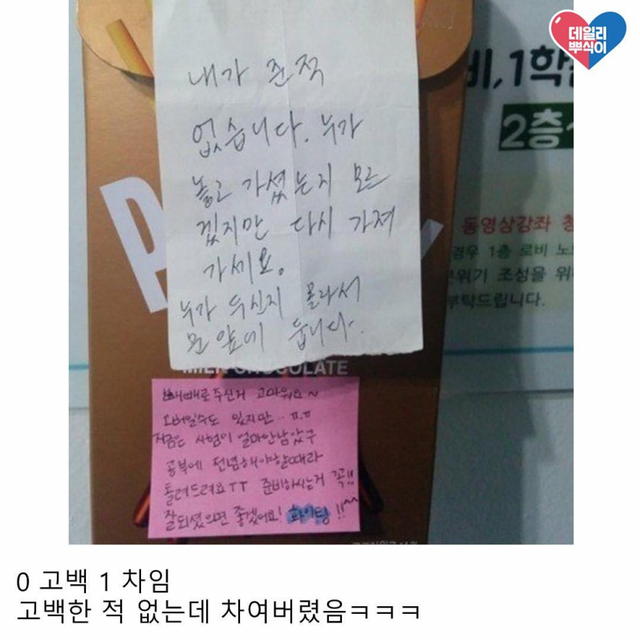 데일리
뿌식이
내가 준적
없습니다. 누가
놓고 가셨는지 모르
겠지만 다시 가져
가세요.
누가 두신지 몰라서
문 앞에 둡니다.
비, 1학
2층
동영상강좌 청
경우 1층 로비 노
분위기 조성을 위
부탁드립니다.
P
MILK CHOCOLATE
빼빼로주신거 고마워요~
오버일수도 있지만.. ㅠ.ㅠ
지금은 시험이 얼마안남았구
공부에 전념해야할때라
돌려드려요ㅜㅜ 준비하시는거 꼭!!
잘되셨으면 좋겠어요! 화이팅!!
0 고백 1 차임
고백한 적 없는데 차여버렸음ㅋㅋㅋ